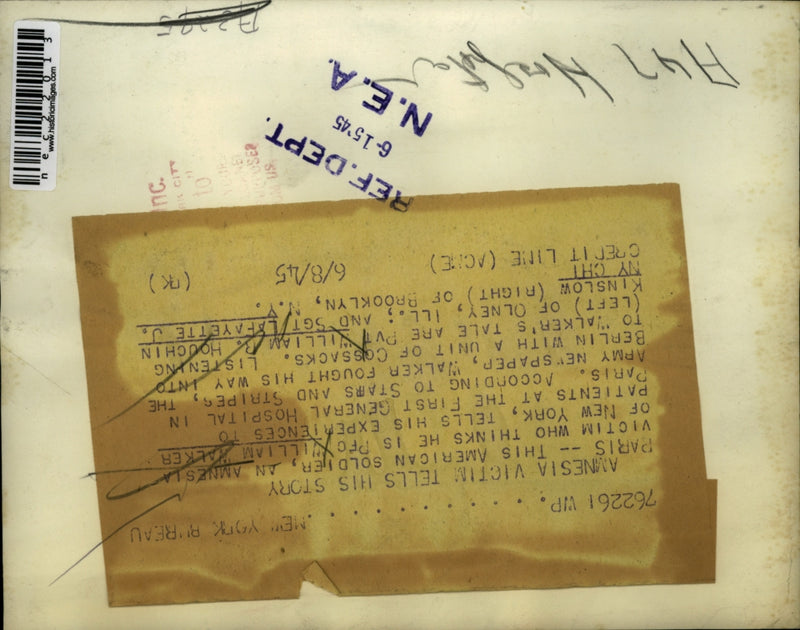 762261 WP. . . . . . . . . . . NEW YORK BUREAU
AMNESIA VICTIM TELLS HIS STORY
PARIS -- THIS AMERICAN SOLDIER, AN AMNESIA
VICTIM WHO THINKS HE IS PFC WILLIAM WALKER
OF NEW YORK, TELLS HIS EXPERIENCES TO
PATIENTS AT THE FIRST GENERAL HOSPITAL IN
PARIS. ACCORDING TO STARS AND STRIPES, THE
ARMY NEWSPAPER, WALKER FOUGHT HIS WAY INTO
BERLIN WITH A UNIT OF COSSACKS. LISTENING
TO WALKER'S TALE ARE PVT WILLIAM R. HOUCHIN
(LEFT) OF OLNEY, ILL., AND SGT LAFAYETTE J.
KINSLOW (RIGHT) OF BROOKLYN, N.Y.
NY CHI
CREDIT LINE (ACME) 6/8/45 (RK)
REF. DEPT.
6-15'45
N.E.A.
nec22013
www.historicimages.com
INC.
to